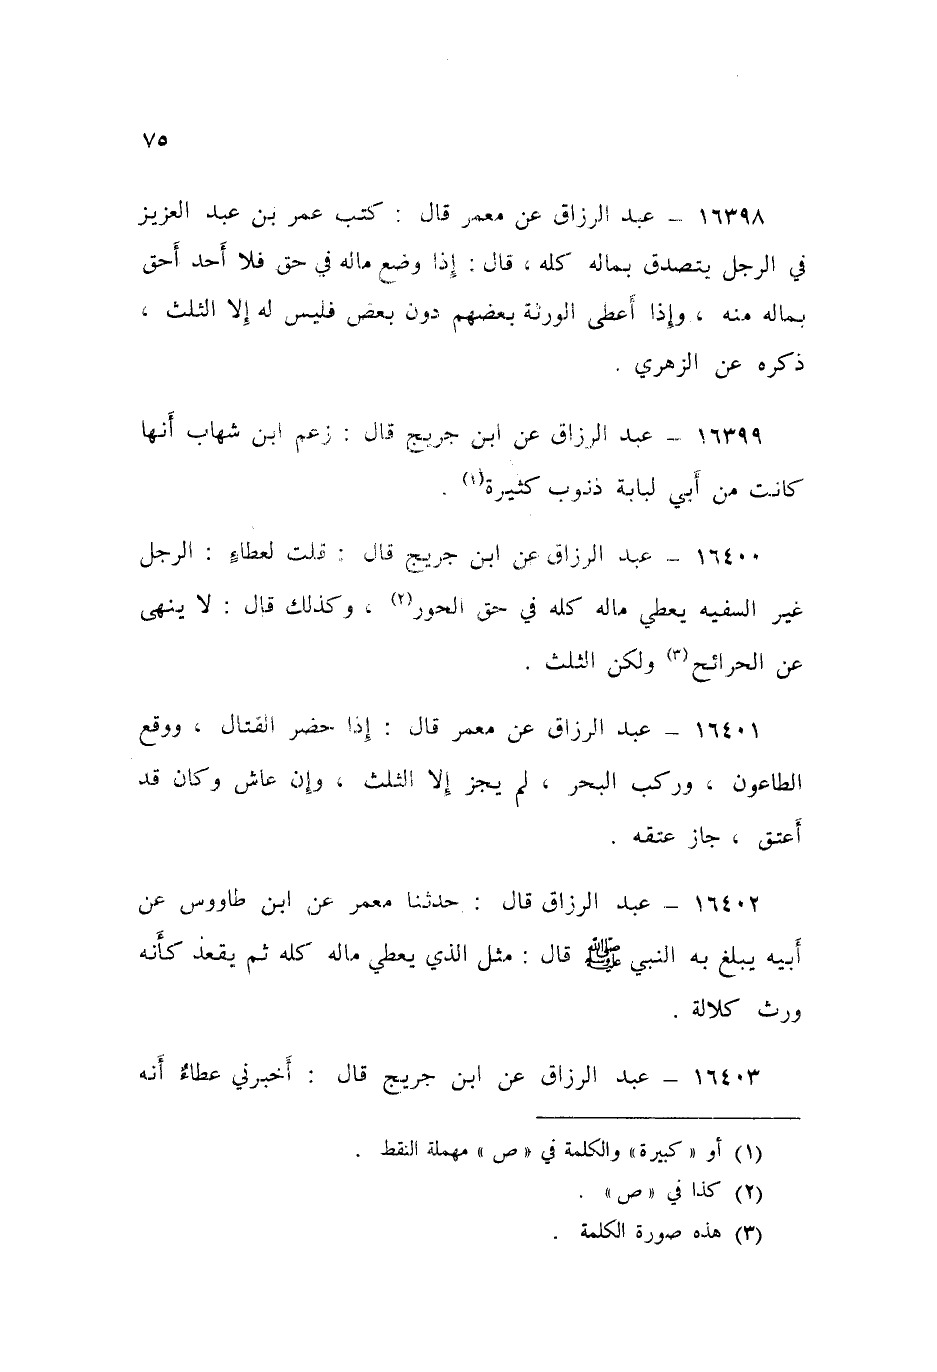 ٧٥
١٦٣٩٨ ـ عبد الرزاق عن معمر قال : كتب عمر بن عبد العزيز
في الرجل يتصدق بماله كله ، قال : إذا وضع ماله في حق فلا أحد أحق
بماله منه ، وإذا أعطى الورثة بعضهم دون بعض فليس له إلا الثلث ،
ذكره عن الزهري .
١٦٣٩٩ ـ عبد الرزاق عن ابن جريج قال : زعم ابن شهاب أنها
كانت من أبي لبابة ذنوب كثيرة(١) .
١٦٤٠٠ ـ عبد الرزاق عن ابن جريج قال : قلت لعطاءٍ : الرجل
غير السفيه يعطي ماله كله في حق الحور(٢) ، وكذلك قال : لا ينهى
عن الحرائح(٣) ولكن الثلث .
١٦٤٠١ ـ عبد الرزاق عن معمر قال : إذا حضر القتال ، ووقع
الطاعون ، وركب البحر ، لم يجز إلا الثلث ، وإن عاش وكان قد
أعتق ، جاز عتقه .
١٦٤٠٢ ـ عبد الرزاق قال : حدثنا معمر عن ابن طاووس عن
أبيه يبلغ به النبي ﷺ قال : مثل الذي يعطي ماله كله ثم يقعد كأنه
ورث كلالة .
١٦٤٠٣ ـ عبد الرزاق عن ابن جريج قال : أخبرني عطاءٌ أنه
(١) أو « كبيرة» والكلمة في « ص » مهملة النقط .
(٢) كذا في « ص» .
(٣) هذه صورة الكلمة .